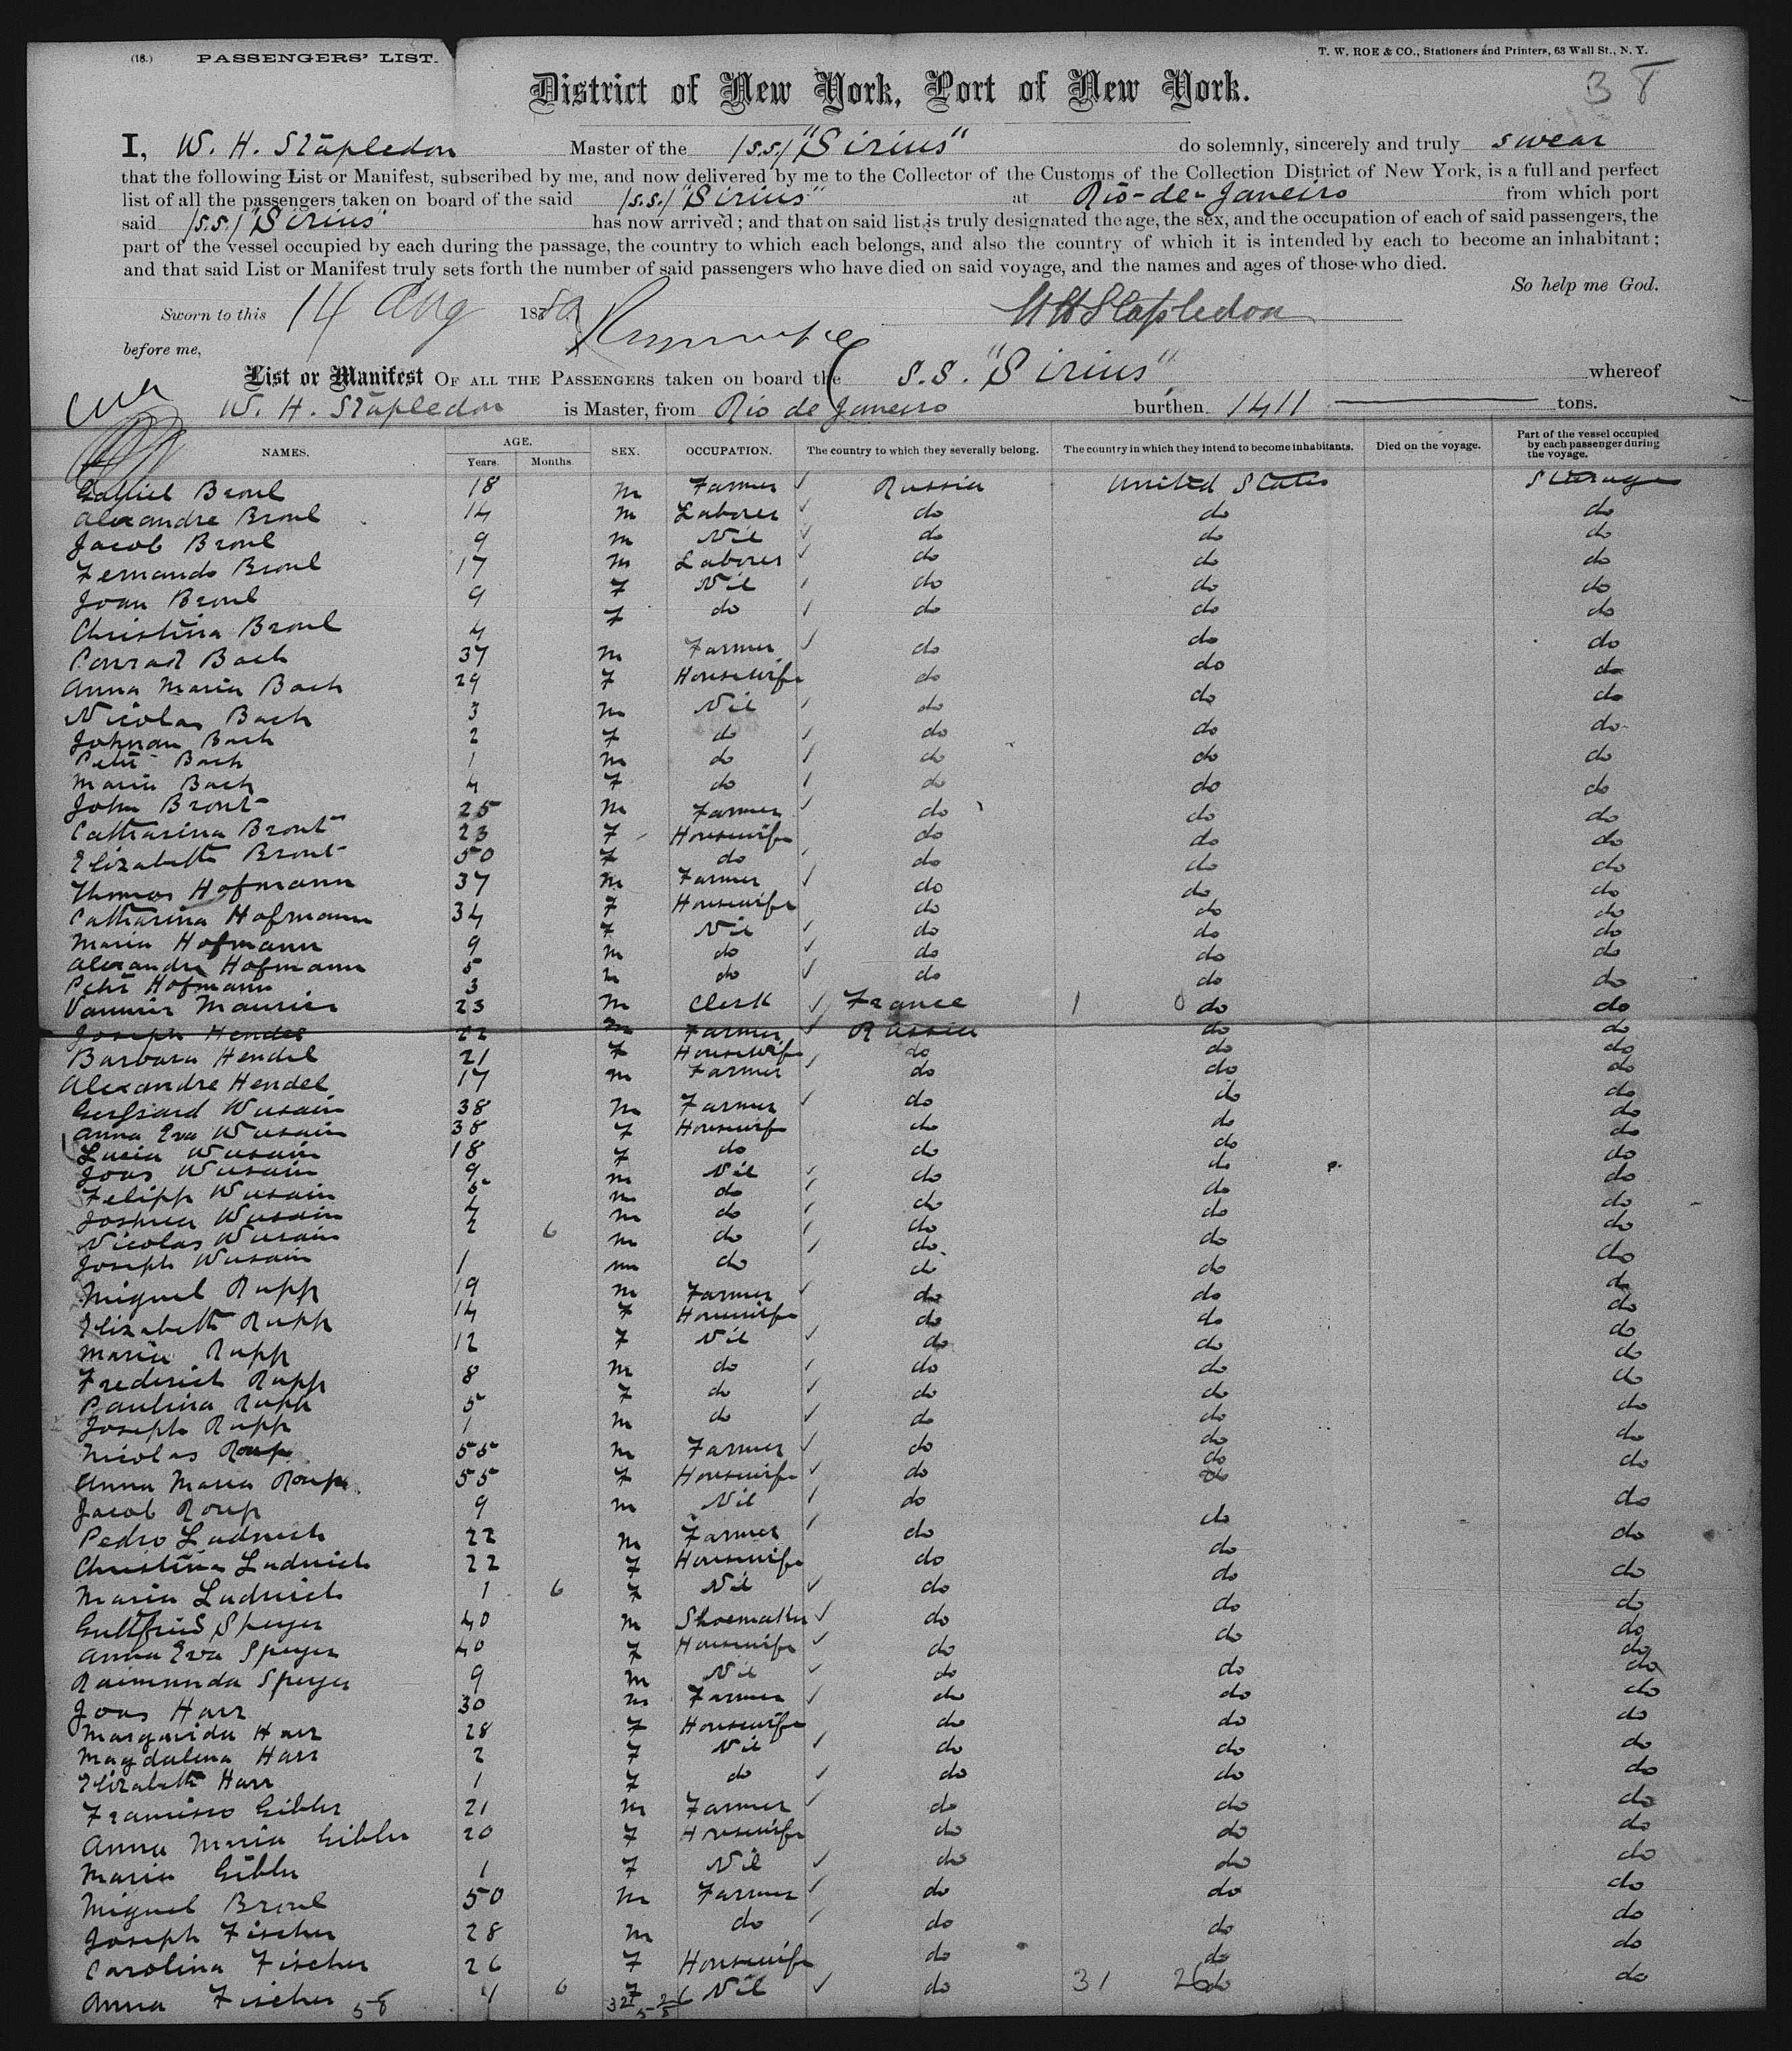 (18.) PASSENGERS' LIST. T. W. ROE & CO., Stationers and Printers, 63 Wall St., N. Y.
District of New York, Port of New York.
I, W. H. Stapledon Master of the (s.s.) "Sirius" do solemnly, sincerely and truly swear
that the following List or Manifest, subscribed by me, and now delivered by me to the Collector of the Customs of the Collection District of New York, is a full and perfect
list of all the passengers taken on board of the said (s.s.) "Sirius" at Rio-de-Janeiro from which port
said (s.s.) "Sirius" has now arrived; and that on said list is truly designated the age, the sex, and the occupation of each of said passengers, the
part of the vessel occupied by each during the passage, the country to which each belongs, and also the country of which it is intended by each to become an inhabitant;
and that said List or Manifest truly sets forth the number of said passengers who have died on said voyage, and the names and ages of those who died.
So help me God.
Sworn to this 14 Aug 187 WH Stapledon
before me,
List or Manifest OF ALL THE PASSENGERS taken on board the S.S. "Sirius" whereof
W. H. Stapledon is Master, from Rio de Janeiro burthen 1411 tons.
NAMES. AGE. Years. Months. SEX. OCCUPATION. The country to which they severally belong. The country in which they intend to become inhabitants. Died on the voyage. Part of the vessel occupied by each passenger during the voyage.
Broul 18 M Farmer Russia United States Steerage
Alexandre Broul 14 M Laborer do do do
Jacob Broul 9 M Nil do do do
Fernando Broul 17 M Laborer do do do
Joan Broul 9 F Nil do do do
Christina Broul 4 F do do do do
Conrad Bach 37 M Farmer do do do
Anna Maria Bach 29 F Housewife do do do
Nicolas Bach 3 M Nil do do do
Johnan Bach 2 F do do do do
Petri Bach 1 M do do do do
Maria Bach 4 F do do do do
John Bront 25 M Farmer do do do
Catharina Bront 23 F Housewife do do do
Elizabetta Bront 50 F do do do do
Thomas Hofmann 37 M Farmer do do do
Catharina Hofmann 34 F Housewife do do do
Maria Hofmann 9 F Nil do do do
Alexandre Hofmann 5 M do do do do
Petri Hofmann 3 M do do do do
Maurier 23 M Clerk France do do
Joseph Hendel 22 M Farmer Russia do do
Barbara Hendel 21 F Housewife do do do
Alexandre Hendel 17 M Farmer do do do
Wusain 38 M Farmer do do do
Anna Eva Wusain 38 F Housewife do do do
Lucia Wusain 18 F do do do do
Joas Wusain 9 M Nil do do do
Felipp Wusain 5 M do do do do
Joshua Wusain 4 M do do do do
Nicolas Wusain 2 6 M do do do do
Joseph Wusain 1 M do do do do
Miguel Rupp 19 M Farmer do do do
Elizabetta Rupp 14 F Housewife do do do
Maria Rupp 12 F Nil do do do
Frederich Rupp 8 M do do do do
Paulina Rupp 5 F do do do do
Joseph Rupp 1 M do do do do
Nicolas Roup 55 M Farmer do do do
Anna Maria Roup 55 F Housewife do do do
Jacob Roup 9 M Nil do do do
Pedro Ludwich 22 M Farmer do do do
Christina Ludwich 22 F Housewife do do do
Maria Ludwich 1 6 F Nil do do do
Guttfried Speyer 40 M Shoemaker do do do
Anna Eva Speyer 40 F Housewife do do do
Raimunda Speyer 9 M Nil do do do
Joas Harr 30 M Farmer do do do
Margarida Harr 28 F Housewife do do do
Magdalena Harr 2 F Nil do do do
Elizabetta Harr 1 F do do do do
Francisco Gibler 21 M Farmer do do do
Anna Maria Gibler 20 F Housewife do do do
Maria Gibler 1 F Nil do do do
Miguel Broul 50 M Farmer do do do
Joseph Fischer 28 M do do do do
Carolina Fischer 26 F Housewife do do do
Anna Fischer 58 6 F Nil do 31 26 do do